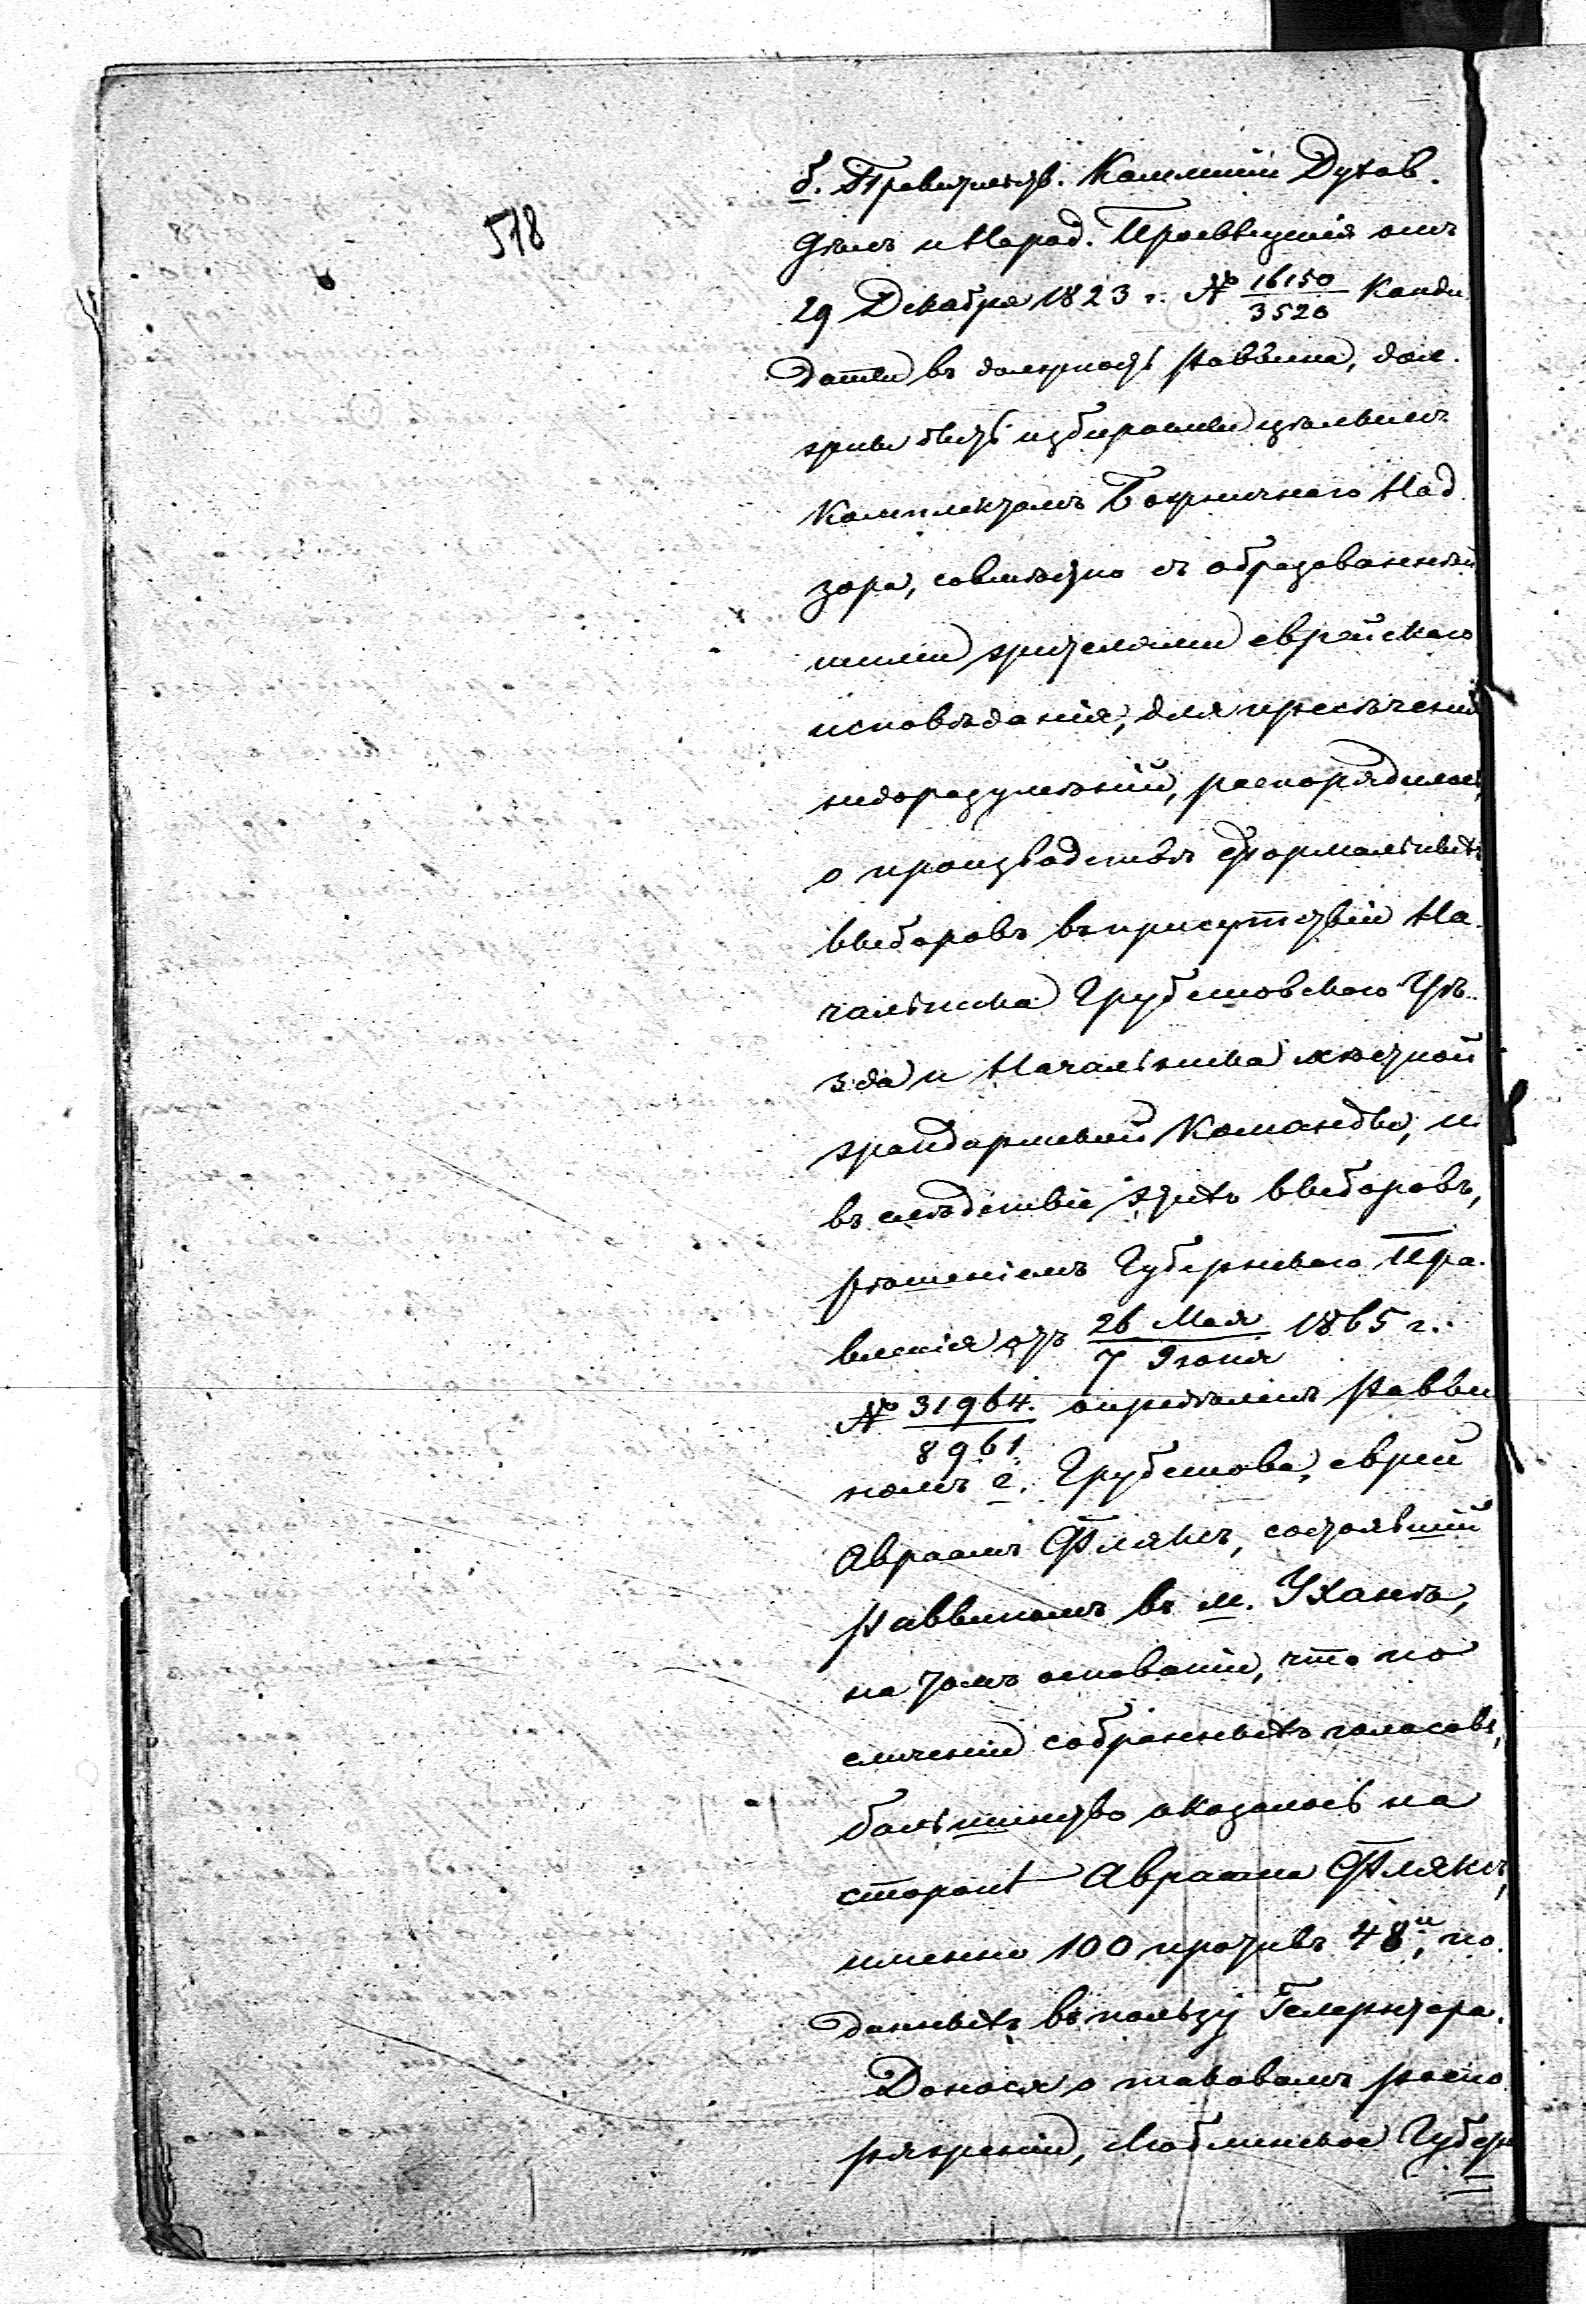 518
б. Правительств. Коммиссіи Духов.
Дѣлъ и Народ. Просвѣщенія отъ
29 Декабря 1823 г. № 16150/3520 Канди
даты въ должность Раввина, дол.
жны быть избираемы цѣлымъ
Комплектомъ Божничнаго Над
зора, совмѣстно съ образованнѣй
шими жителями еврейскаго
исповѣданія, для пресѣченія
недоразумѣній, распорядилось,
о производствѣ формальныхъ
выборовъ въ присутствіи На.
чальника Грубешовскаго Уѣ.
зда и Начальника мѣстной
жандармской Команды, и
въ слѣдствіе этихъ выборовъ,
рѣшеніемъ Губернскаго Пра.
вленія отъ 26 Мая/7 Іюня 1865 г.
№ 31964./8961. опредѣленъ Равви
номъ г. Грубешова, еврей
Авраамъ Флякъ, состоявшій
Раввиномъ въ м. Уханѣ,
на томъ основаніи, что по
сличеніи собранныхъ голосовъ,
большинство оказалось на
сторонѣ Авраама Флякъ,
именно 100 противъ 48и, по.
данныхъ въ пользу Гелернтера.
Донося о таковомъ распо
ряженіи, Люблинское Губерн